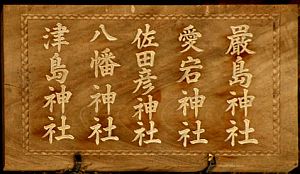 嚴島神社
愛宕神社
佐田彦神社
八幡神社
津島神社